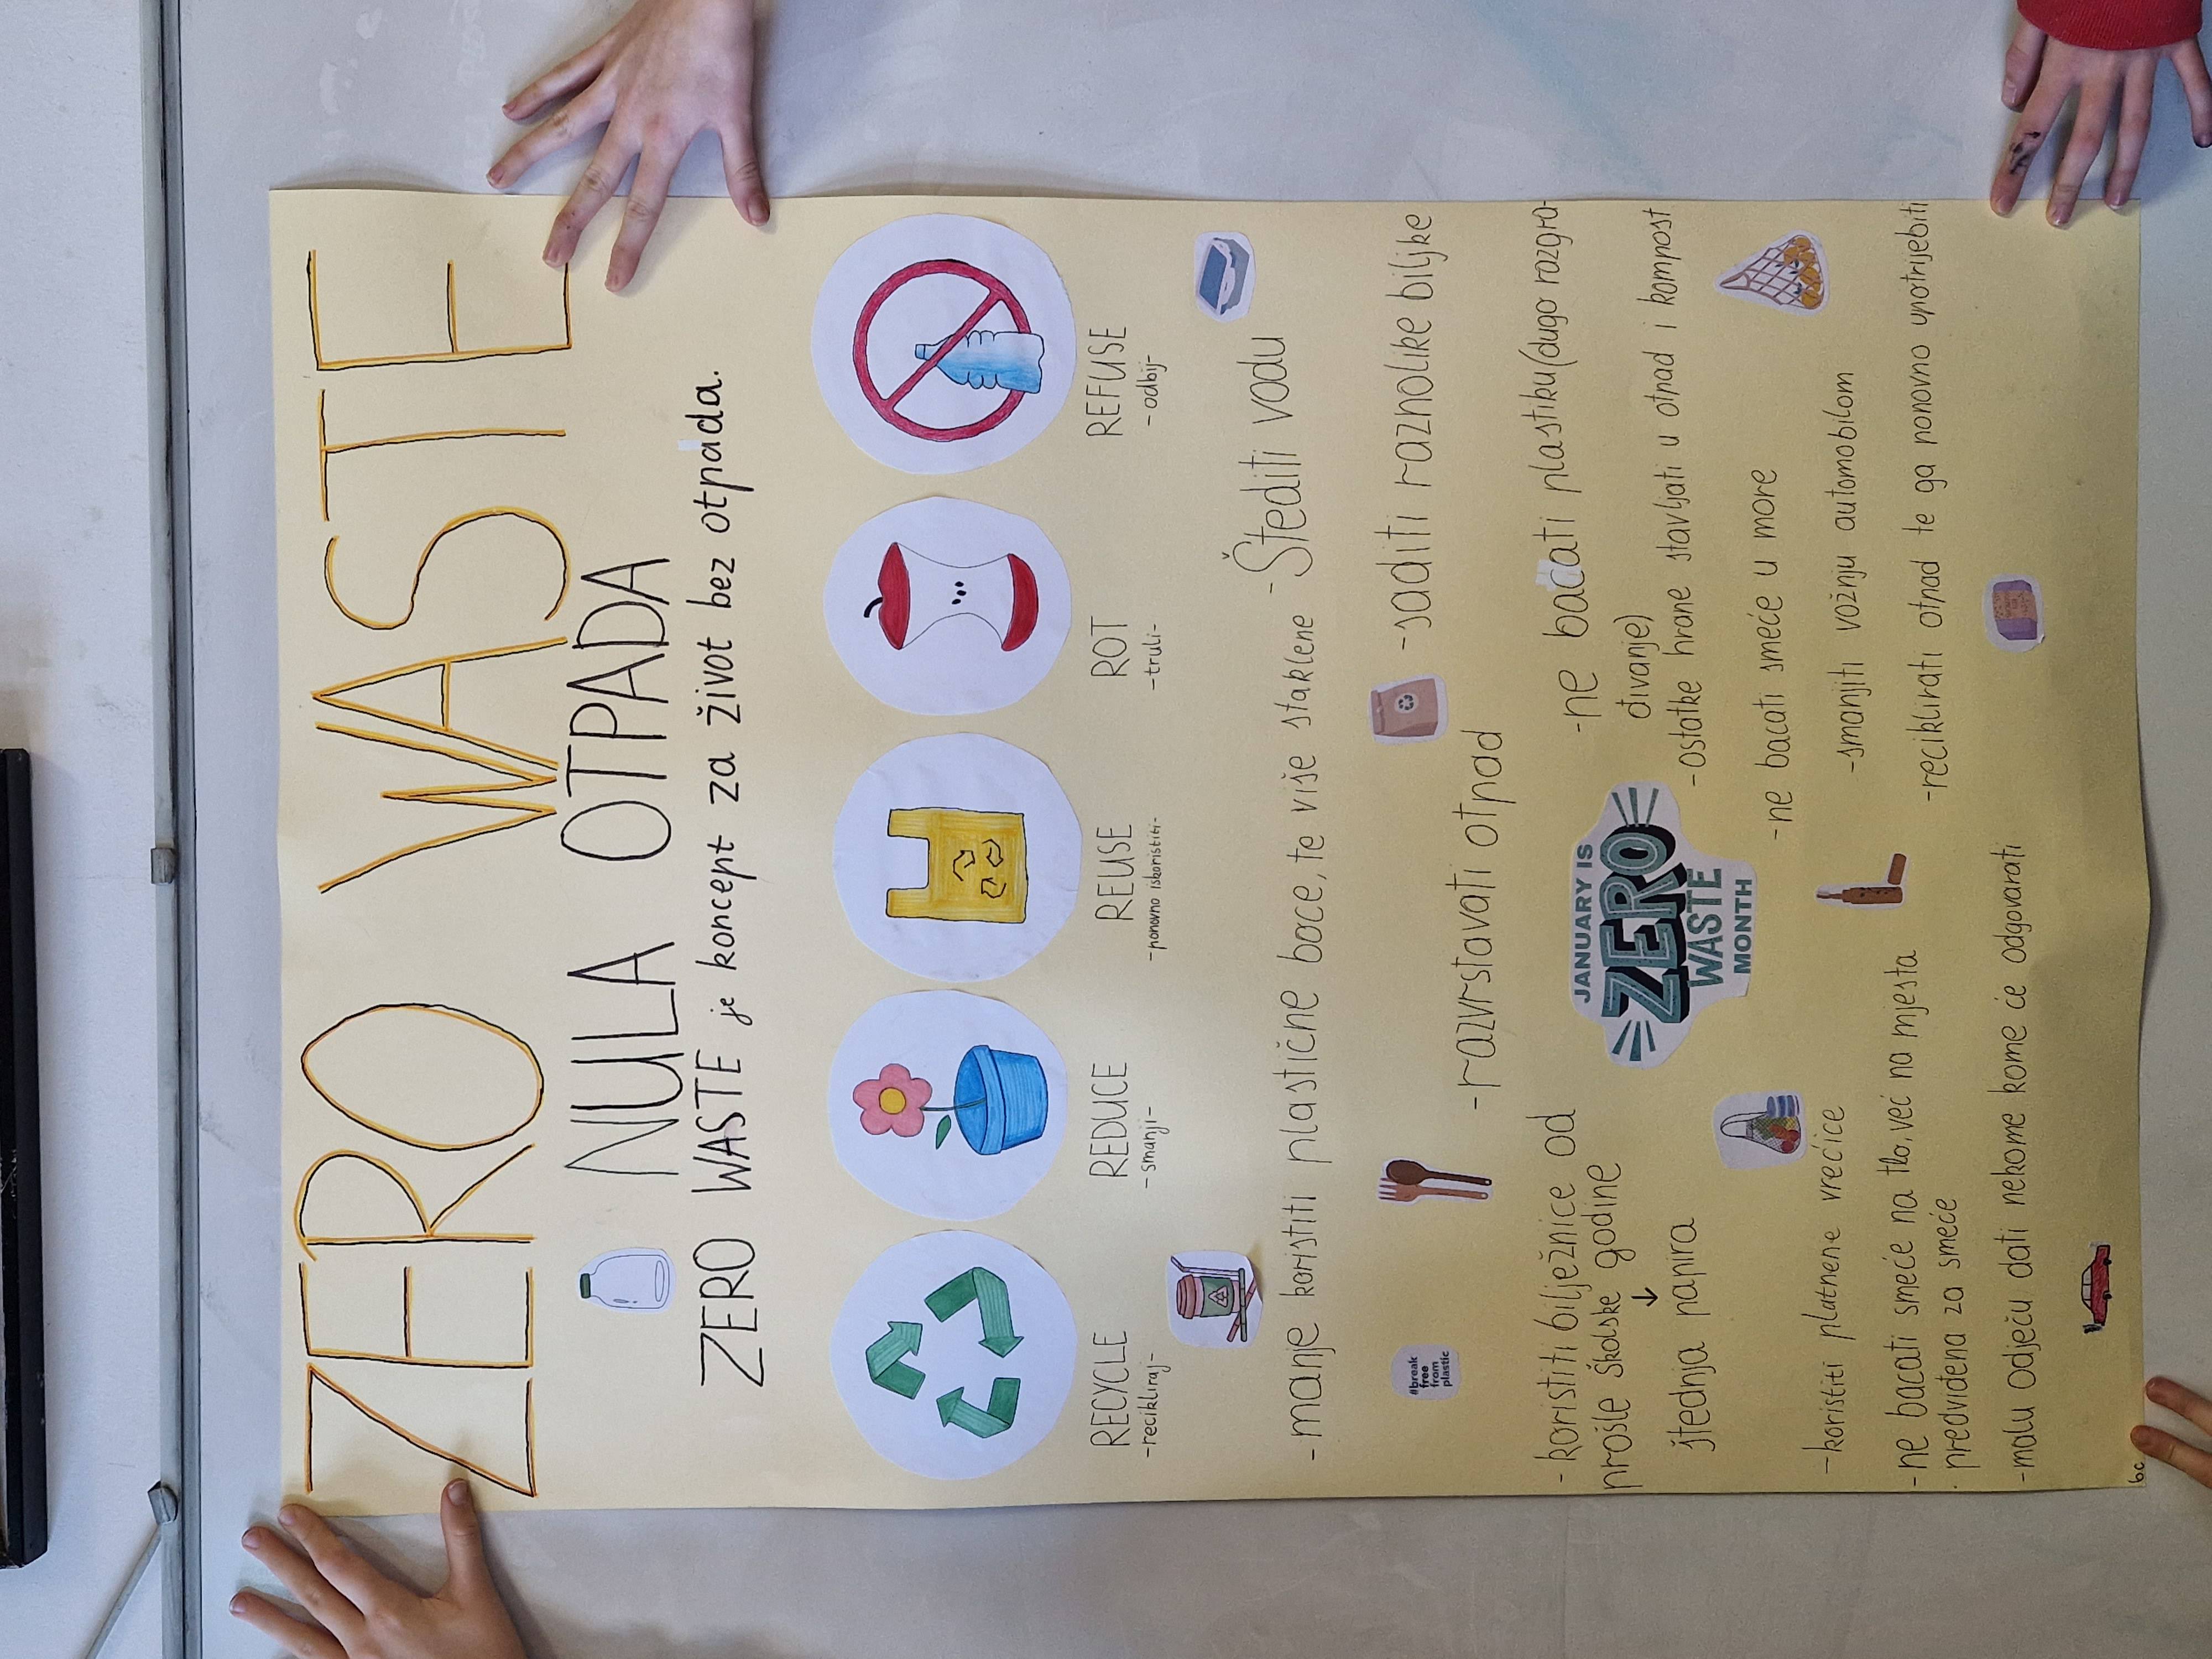 ZERO WASTE
NULA OTPADA
ZERO WASTE je koncept za život bez otpada.
RECYCLE
-recikliraj-
REDUCE
-smanji-
REUSE
-ponovno iskoristiti-
ROT
-truli-
REFUSE
-odbij-
-manje koristiti plastične boce, te više staklene
-Štediti vodu
#break
free
from
plastic
-razvrstavati otpad
-saditi raznolike biljke
-koristiti bilježnice od
prošle školske godine
↓
štednja papira
JANUARY IS
ZERO
WASTE
MONTH
-ne bacati plastiku(dugo razgra-
đivanje)
-ostatke hrane stavljati u otpad i kompost
-ne bacati smeće u more
-koristiti platnene vrećice
-smanjiti vožnju automobilom
-ne bacati smeće na tlo, već na mjesta
predviđena za smeće
-reciklirati otpad te ga ponovno upotrijebiti
-malu odjeću dati nekome kome će odgovarati
6.c